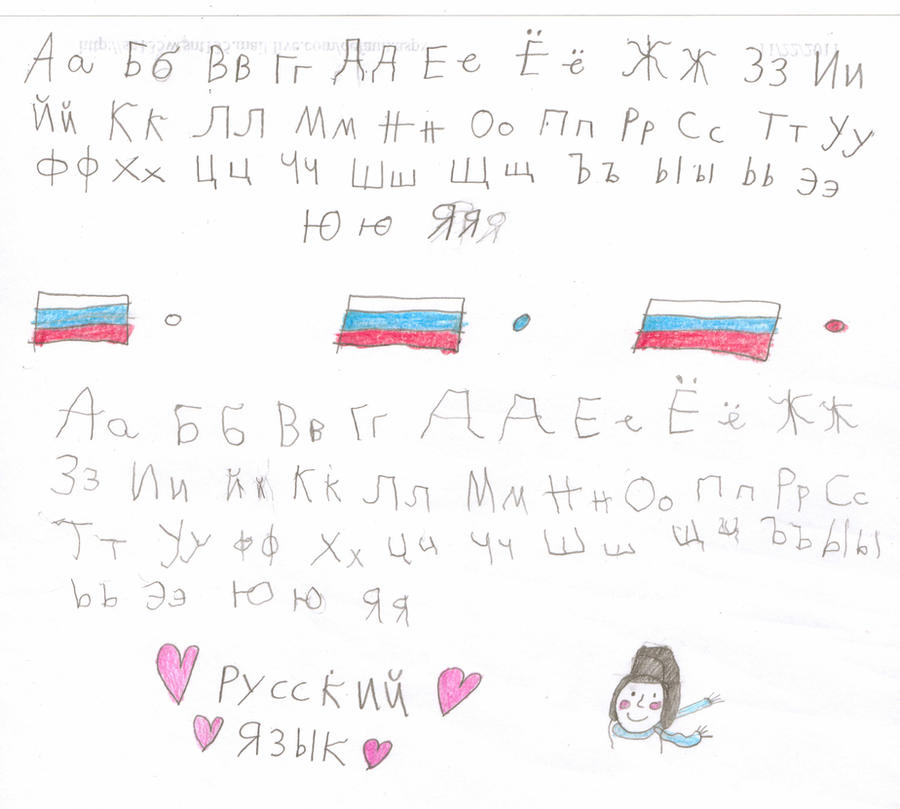 Аа Бб Вв Гг Дд Ее Ёё Жж Зз Ии
Йй Кк Лл Мм Нн Оо Пп Рр Сс Тт Уу
Фф Хх Цц Чч Шш Щщ Ъъ Ыы Ьь Ээ
Юю Яяя
Аа Бб Вв Гг Дд Ее Ёё Жж
Зз Ии Йй Кк Лл Мм Нн Оо Пп Рр Сс
Тт Уу Фф Хх Цц Чч Шш Щщ Ъъ Ыы
Ьь Ээ Юю Яя
Русский
язык